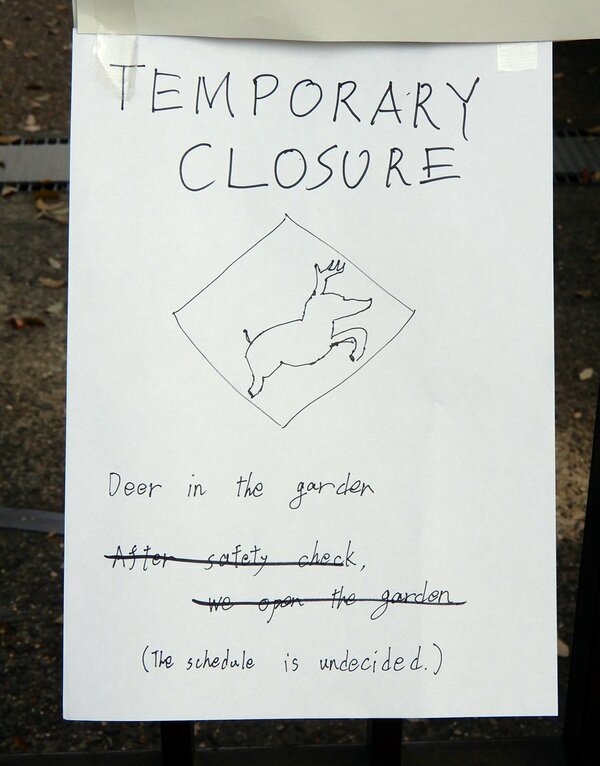 TEMPORARY
CLOSURE
Deer in the garden
After safety check,
we open the garden
(The schedule is undecided.)